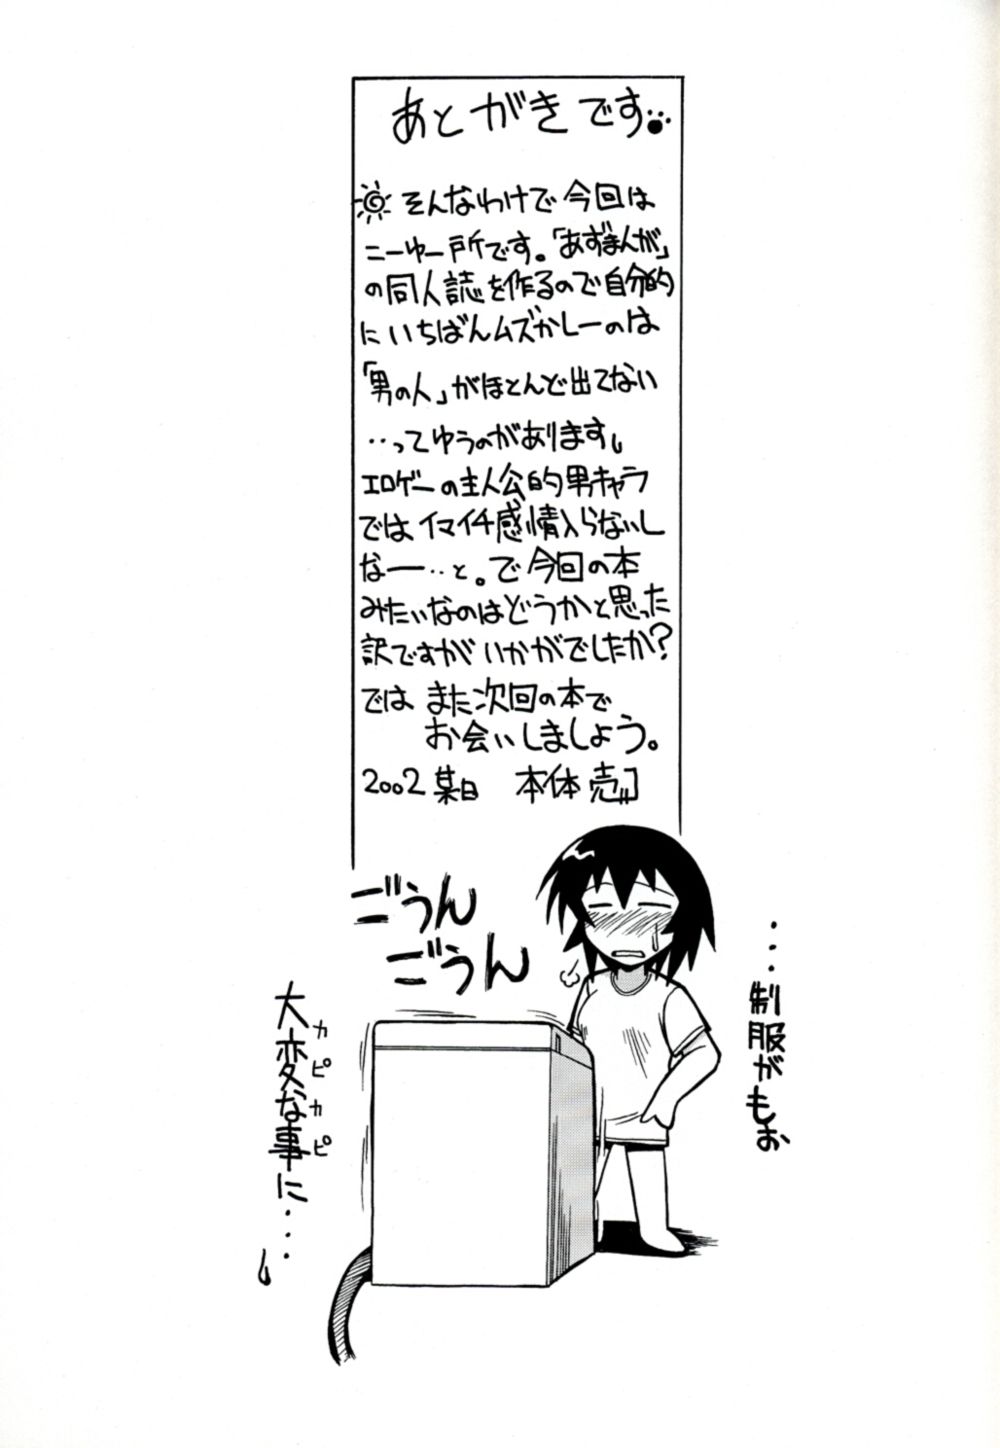 あとがきです
そんなわけで今回は
こーゆー所です。「あずまんが」
の同人誌を作るので自分的
にいちばんムズかしーのは
「男の人」がほとんど出てない
‥ってゆうのがあります。
エロゲーの主人公的男キャラ
ではイマイチ感情入らないし
なー‥と。で今回の本
みたいなのはどうかと思った
訳ですがいかがでしたか?
では また次回の本で
お会いしましょう。
2002 某日 本体売
ごうん
ごうん
・・・制服がもお
カピカピ
大変な事に・・・